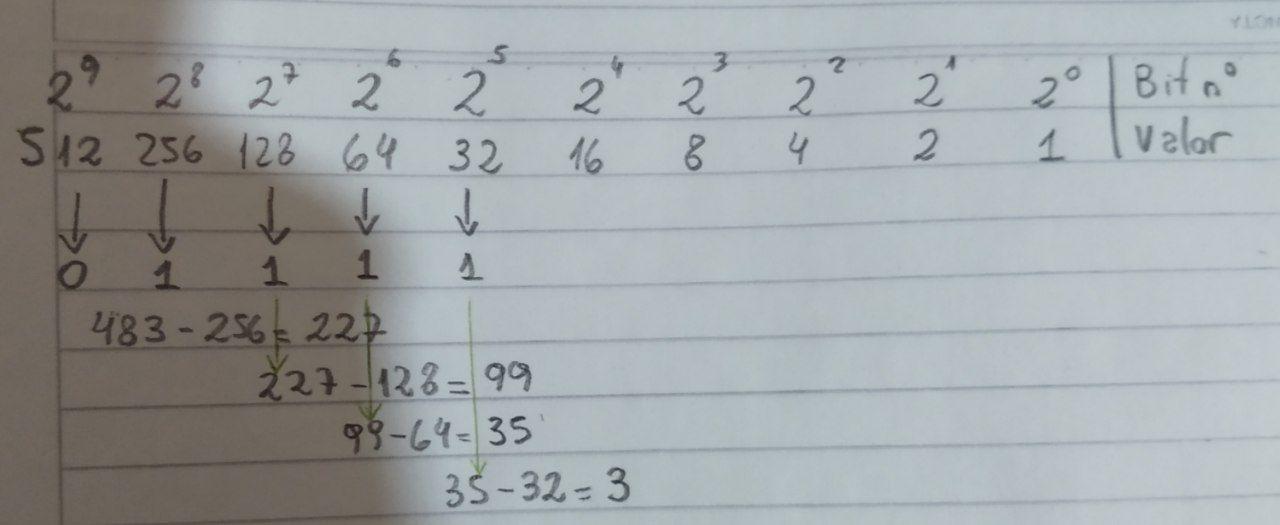 2⁹ 2⁸ 2⁷ 2⁶ 2⁵ 2⁴ 2³ 2² 2¹ 2⁰ | Bit nº
512 256 128 64 32 16 8 4 2 1 | Valor
↓ ↓ ↓ ↓ ↓
0 1 1 1 1
483-256=227
227-128=99
99-64=35
35-32=3